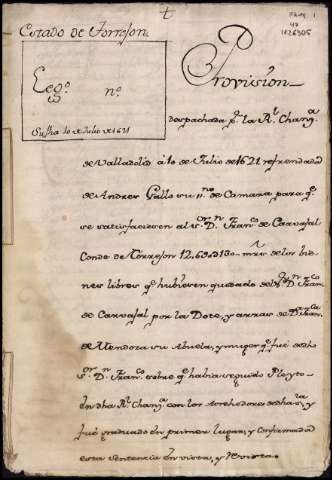 Estado de Torrejon.
Leg.º nº
Su fha 10 de Julio de 1621
Provision
despachada p.r la R.l Chanz.a
de Valladolid á 10 de Julio de 1621 refrendada
de Andres Gallo su ss.no de Camara para q.e
se satisfaciesen al s.or D.n Fran.co de Carvajal
Conde de Torrejon mrs. de los bie-
nes libres q.e hubiesen quedado del s.or D.n Fran.co
de Carvajal por la Dote, y arras de D.a
de Mendoza su Abuela, y muger q.e fué de dho
s.or D.n Fran.co sobre q.e habia seguido Pleyto
en dha R.l Chanz.a con los acrehedores
fué graduado en primer lugar, y confirmada
esta sentencia en vista, y revista.